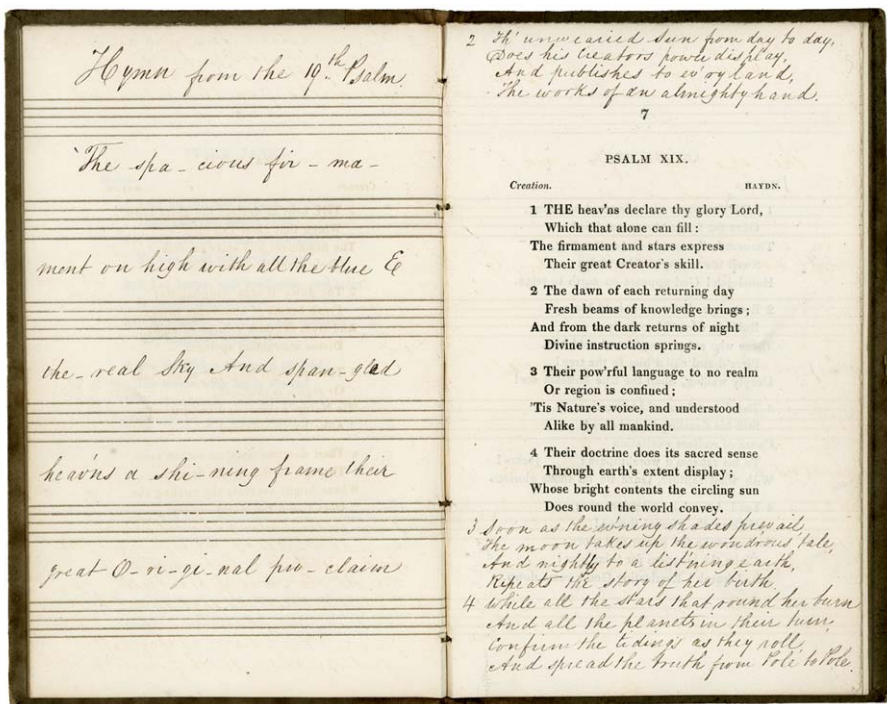 Hymn from the 19th Psalm.
The spa- cious fir- ma-
ment on high with all the blue E
the- real Sky And span- gled
heav'ns a shi- ning frame their
great O- ri- gi- nal pro- claim
2 Th' unwearied Sun from day to day,
Does his Creators power display,
And publishes to ev'ry land,
The works of an almighty hand.
7
PSALM XIX.
Creation. HAYDN.
1 THE heav'ns declare thy glory Lord,
Which that alone can fill:
The firmament and stars express
Their great Creator's skill.
2 The dawn of each returning day
Fresh beams of knowledge brings;
And from the dark returns of night
Divine instruction springs.
3 Their pow'rful language to no realm
Or region is confined;
'Tis Nature's voice, and understood
Alike by all mankind.
4 Their doctrine does its sacred sense
Through earth's extent display;
Whose bright contents the circling sun
Does round the world convey.
3 Soon as the ev'ning shades prevail
The moon takes up the wondrous tale,
And nightly to a list'ning earth,
Repeats the story of her birth.
4 While all the stars that round her burn
And all the planets in their turn,
Confirm the tidings as they roll,
And spread the truth from Pole to Pole.